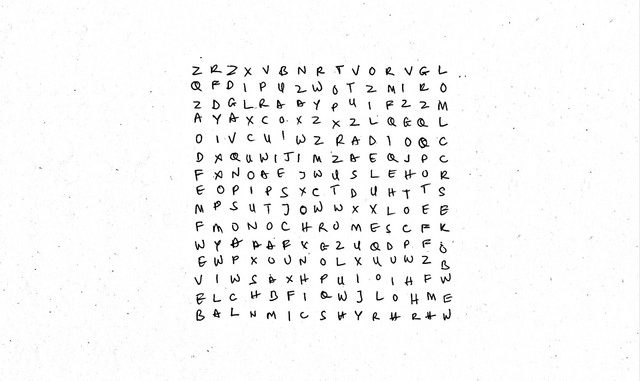 Z R Z X V B N R T V O R V G L
Q F D I P U Z W O T Z M I R O
Z D G L R A A Y P U I F Z Z M
A Y A X C O X Z X Z L Q G Q L
O I V C U I W Z R A D I O Q C
D X Q U W I J I M Z A E Q J P C
F X N O A E J W U S L E H O R
E O P I P S X C T D U H T T S
M P S U T J O W W X X L O E E
F M O N O C H R O M E S C F K
W Y A A A E X G Z U Q D P F O
E W P X O U N O L X U U W Z B
V I W S A X H P U I O I H F W
E L C H B F I Q W J L O H M E
B A L N M I C S H Y R H R H W